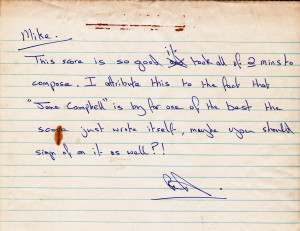 Mike.
This score is so good it took all of 2 mins to
compose. I attribute this to the fact that
"Jane Campbell" is by far one of the best the
score just wrote itself, maybe you should
sign of on it as well?!